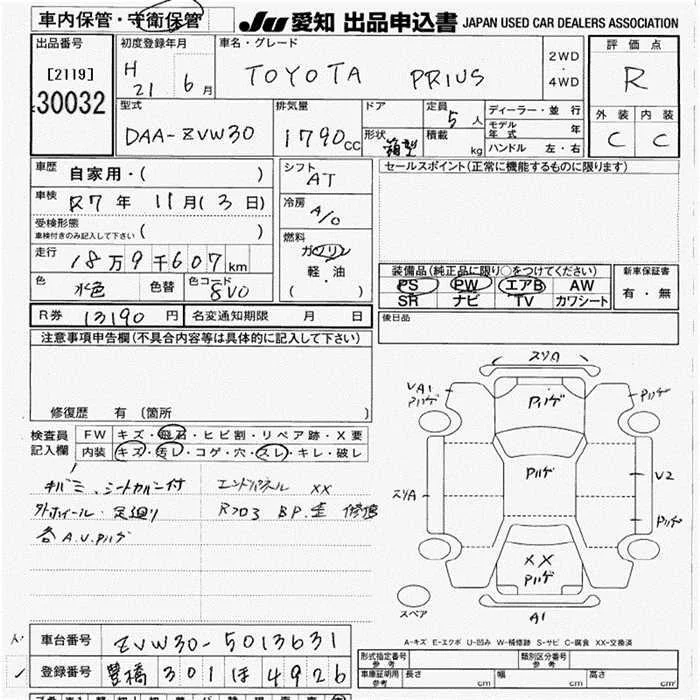 車内保管・守衛保管
JU 愛知 出品申込書 JAPAN USED CAR DEALERS ASSOCIATION
出品番号
[2119]
30032
初度登録年月
H 21 6 月
車名・グレード
TOYOTA PRIUS
2WD
・
4WD
評価点
R
外装 内装
C C
型式
DAA-ZVW30
排気量
1790 CC
ドア
形状 箱型
定員
5 人
積載
kg
ディーラー・並行
モデル年式 年
ハンドル 左・右
車歴
自家用・( )
車検
R7 年 11 月 (3 日)
受検形態
車検付きのみ記入して下さい ( )
走行
18 万 9 千 607 km
色 水色 色替 色コード 8V0
シフト
AT
冷房
A/C
燃料
ガソリン
軽・油
( )
セールスポイント(正常に機能するものに限ります)
装備品(純正品に限り○をつけてください)
PS PW エアB AW
SR ナビ TV カワシート
新車保証書
有・無
R券 13190 円 名変通知期限 月 日
後日品
注意事項申告欄(不具合内容等は具体的に記入して下さい)
修復歴 有 (箇所 )
検査員
記入欄
FW キズ・飛石・ヒビ割・リペア跡・X要
内装 キズ・汚レ・コゲ・穴・スレ・キレ・破レ
キバミ、シートカバー付
エンドパネル XX
外ホイール・足廻り
Rフロア BP.歪 修復
各A.U.Pハゲ
スリA
UA1
Pハゲ
Pハゲ
Pハゲ
スリA
Pハゲ
U2
Pハゲ
XX
Pハゲ
スペア
A1
A-キズ E-エクボ U-凹み W-補修跡 S-サビ C-腐食 XX-交換済
車台番号 ZVW30-5013631
登録番号 豊橋 301 ほ 4926
形式指定番号
参考
類別区分番号
参考
車庫証明用
参考
長さ cm 幅 cm 高さ cm